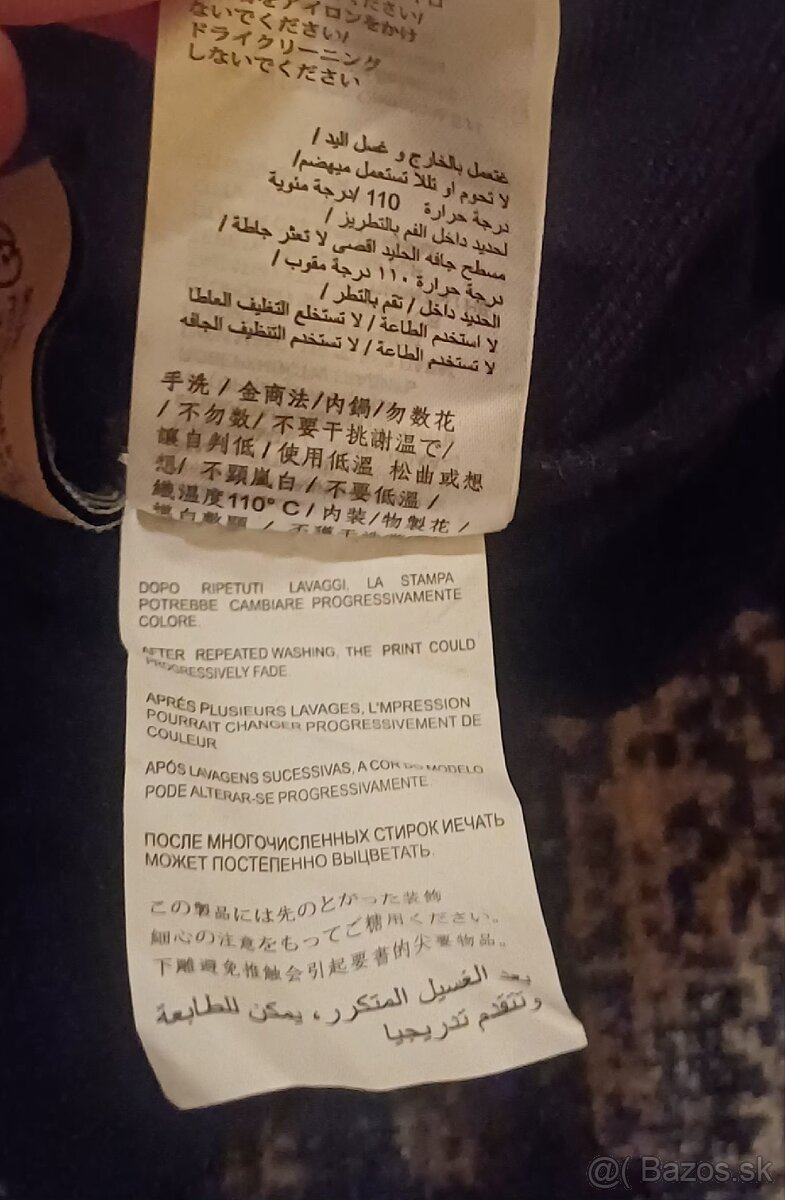 ないでください/
ドライクリーニング
しないでください
غتعمل بالخارج و غسل اليد /
لا تحوم او تللا تستعمل ميهضم/
درجة حرارة 110 /درجة مئوية
لحديد داخل الفم بالتطريز /
مسطح جافه الحليد اقصى لا تعثر جاطة /
درجة حرارة ١١٠ درجة مقوب /
الحديد داخل / تقم بالتطر /
لا استخدم الطاعة / لا تستخلع التخليف العاطا
لا تستخدم الطاعة / لا تستخدم التنظيف الجافه
手洗 / 金商法/内鍋/勿数花
/ 不勿数/ 不要干挑謝温で/
讓自判低 / 使用低溫 松曲或想
想/ 不顕嵐白 / 不要低溫 /
織溫度110° C / 内装/物製花 /
DOPO RIPETUTI LAVAGGI, LA STAMPA
POTREBBE CAMBIARE PROGRESSIVAMENTE
COLORE.
AFTER REPEATED WASHING, THE PRINT COULD
PROGRESSIVELY FADE.
APRÉS PLUSIEURS LAVAGES, L'MPRESSION
POURRAIT CHANGER PROGRESSIVEMENT DE
COULEUR
APÓS LAVAGENS SUCESSIVAS, A COR DO MODELO
PODE ALTERAR-SE PROGRESSIVAMENTE.
ПОСЛЕ МНОГОЧИСЛЕННЫХ СТИРОК ИЕЧАТЬ
МОЖЕТ ПОСТЕПЕННО ВЫЦВЕТАТЬ.
この製品には先のとがった装飾
細心の注意をもってご着用ください。
下雕避免惟触会引起要書的尖要物品。
بعد الغسيل المتكرر، يمكن للطابعة
وتتقدم تدريجيا
@( Bazos.sk